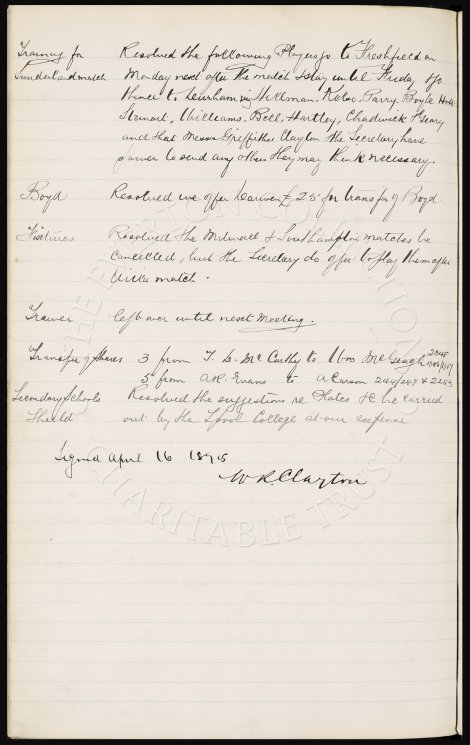 Training for Resolved the following Players go to Freshfield on
Sunderland match Monday next after the match & stay until Friday & go
thence to Durham viz Hillman. Kelso. Parry, Boyle Holt
Stewart, Williams, Bell, Hartley, Chadwick & Geary
and that Messrs Griffiths, Clayton & the Secretary have
power to send any others they may think necessary.
Boyd Resolved we offer Darwen £25 for transfer of Boyd
Fixtures Resolved the Millwall & Southampton matches be
cancelled, but the Secretary do offer to play them after
Villa match -
Trainer left over until next Meeting.
Transfer of Shares 3 from T. D. McCarthy to Wm McGeagh 2048
5 from A.R. Evans to A Carson 244/247 & 2253
Secondary Schools Resolved the suggestions re Plates &c be carried
Shield out by the L'pool College at our expense
Signed April 16 1895
W R Clayton
THE EVERTON COLLECTION
CHARITABLE TRUST